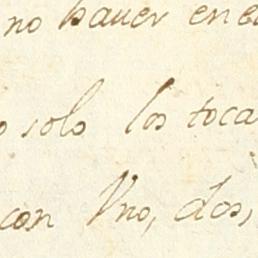 no hauer en el
o solo los toca
con Vno, dos,